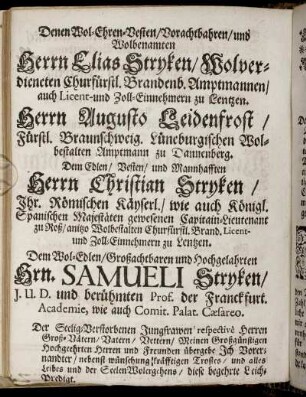 Denen Wol-Ehren-Vesten/Vorachtbahren/und
Wolbenamten
Herrn Elias Stryken/Wolver-
dieneten Churfürstl. Brandenb. Amptmannen/
auch Licent-und Zoll-Einnehmern zu Lentzen.
Herrn Augusto Leidenfrost/
Fürstl. Braunschweig. Lüneburgischen Wol-
bestalten Amptmann zu Dannenberg.
Dem Edlen/Vesten/und Mannhafften
Herrn Christian Stryken/
Ihr. Römischen Käyserl./wie auch Königl.
Spanischen Majestäten gewesenen Capitain-Lieutenant
zu Roß/anitzo Wolbestalten Churfürstl. Brand. Licent-
und Zoll-Einnehmern zu Lentzen.
Dem Wol-Edlen/Großachtbaren und Hochgelahrten
Hrn. SAMUELI Stryken/
J. U. D. und berühmten Prof. der Franckfurt.
Academie, wie auch Comit. Palat. Cæsareo.
Der Seelig-Verstorbenen Jungfrawen respectivè Herren
Groß-Vätern/Vatern/Vettern/Meinen Großgünstigen
Hochgeehrten Herren und Freunden übergebe Ich Vorer-
nandter/nebenst wünschung kräfftigen Trostes/und alles
Leibes und der Seelen Wolergehens/diese begehrte Leich-
Predigt.